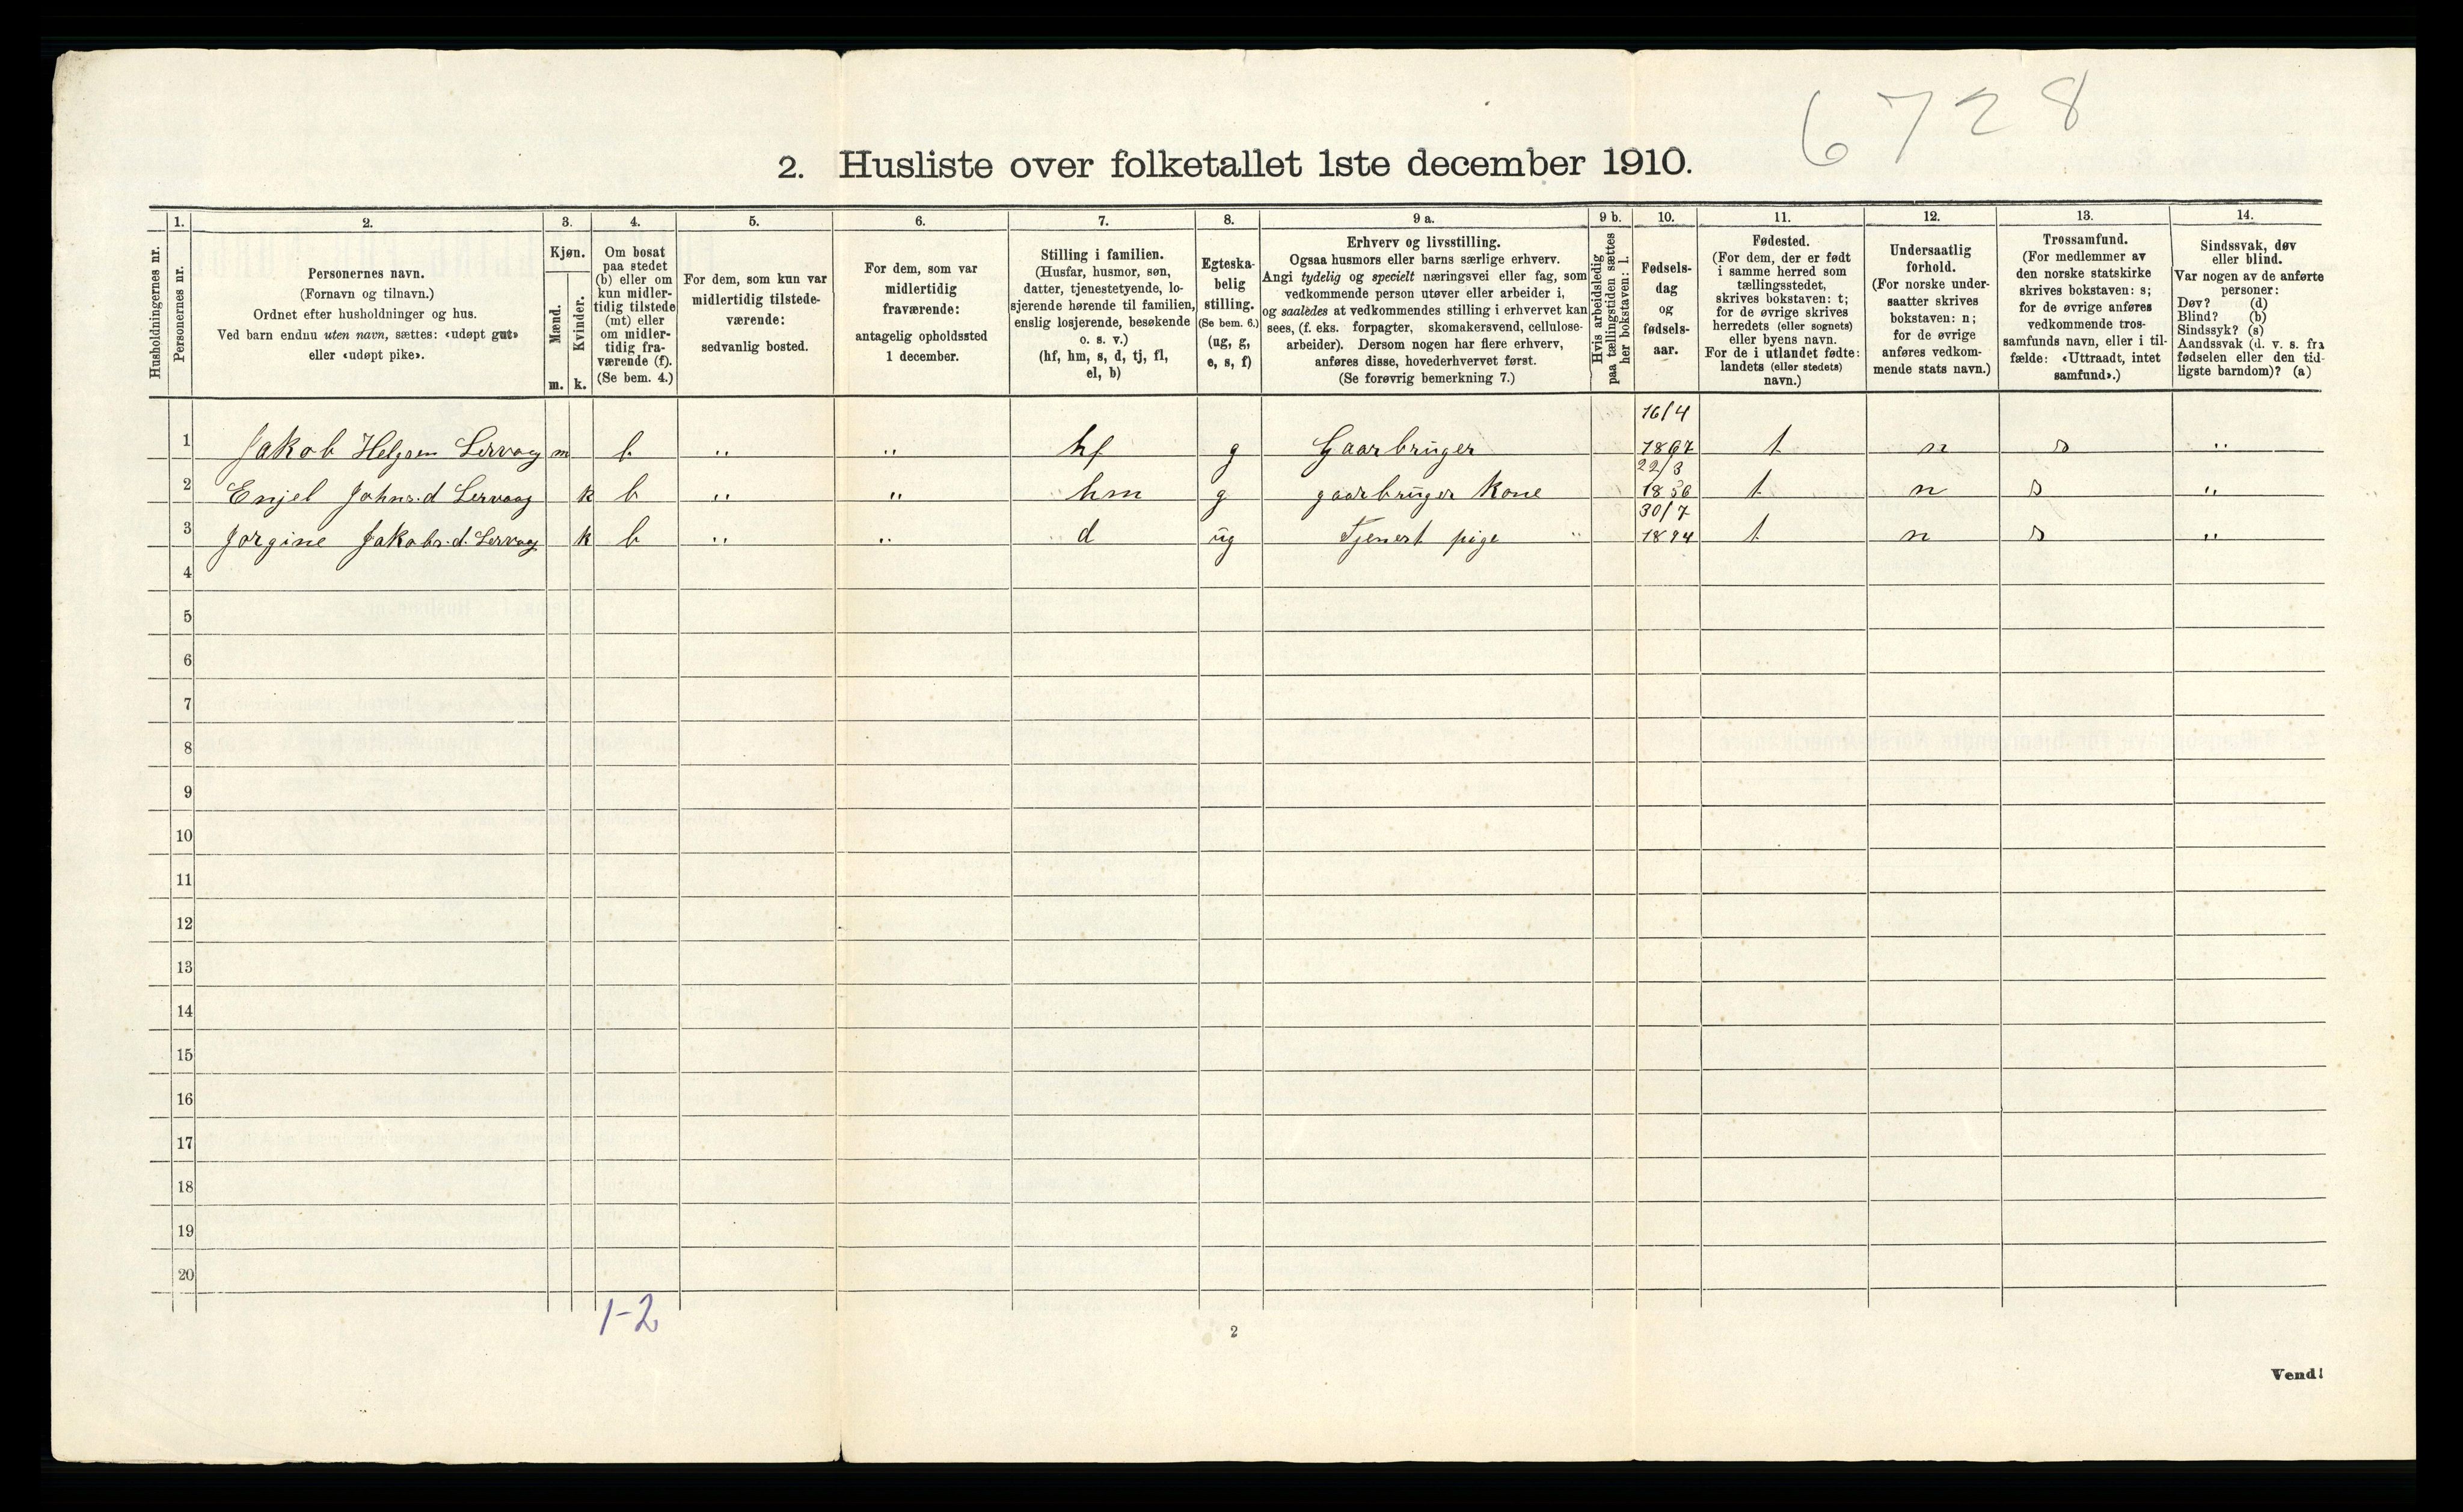 6728
2. Husliste over folketallet 1ste december 1910.
1. 2. 3. 4. 5. 6. 7. 8. 9 a. 9 b. 10. 11. 12. 13. 14.
Husholdningernes nr.
Personernes nr.
Personernes navn.
(Fornavn og tilnavn.)
Ordnet efter husholdninger og hus.
Ved barn endnu uten navn, sættes: «udøpt gut»
eller «udøpt pike».
Kjøn.
Mænd.
Kvinder.
m. k.
Om bosat
paa stedet
(b) eller om
kun midler-
tidig tilstede
(mt) eller
om midler-
tidig fra-
værende (f).
(Se bem. 4.)
For dem, som kun var
midlertidig tilstede-
værende:
sedvanlig bosted.
For dem, som var
midlertidig
fraværende:
antagelig opholdssted
1 december.
Stilling i familien.
(Husfar, husmor, søn,
datter, tjenestetyende, lo-
sjerende hørende til familien,
enslig losjerende, besøkende
o. s. v.)
(hf, hm, s, d, tj, fl,
el, b)
Egteska-
belig
stilling.
(Se bem. 6.)
(ug, g,
e, s, f)
Erhverv og livsstilling.
Ogsaa husmors eller barns særlige erhverv.
Angi tydelig og specielt næringsvei eller fag, som
vedkommende person utøver eller arbeider i,
og saaledes at vedkommendes stilling i erhvervet kan
sees, (f. eks. forpagter, skomakersvend, cellulose-
arbeider). Dersom nogen har flere erhverv,
anføres disse, hovederhvervet først.
(Se forøvrig bemerkning 7.)
Hvis arbeidsledig
paa tællingstiden sættes
her bokstaven: l.
Fødsels-
dag
og
fødsels-
aar.
Fødested.
(For dem, der er født
i samme herred som
tællingsstedet,
skrives bokstaven: t;
for de øvrige skrives
herredets (eller sognets)
eller byens navn.
For de i utlandet fødte:
landets (eller stedets)
navn.)
Undersaatlig
forhold.
(For norske under-
saatter skrives
bokstaven: n;
for de øvrige
anføres vedkom-
mende stats navn.)
Trossamfund.
(For medlemmer av
den norske statskirke
skrives bokstaven: s;
for de øvrige anføres
vedkommende tros-
samfunds navn, eller i til-
fælde: «Uttraadt, intet
samfund».)
Sindssvak, døv
eller blind.
Var nogen av de anførte
personer:
Døv? (d)
Blind? (b)
Sindssyk? (s)
Aandssvak (d. v. s. fra
fødselen eller den tid-
ligste barndom)? (a)
16/4
1 Jakob Helgsen Lervaag m b " " hf g Gaarbruger 1867 t n s "
22/3
2 Enjel Johns.d Lervaag k b " " hm g gaarbruger Kone 1856 t n s "
30/7
3 Jorgine Jakobs.d. Lervaag k b " " d ug Tjenest pige " 1894 t n s "
4
5
6
7
8
9
10
11
12
13
14
15
16
17
18
19
20
1-2
2
Vend!